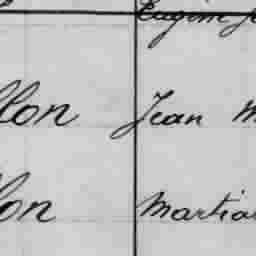 Eugène
llon Jean M
lon Martia